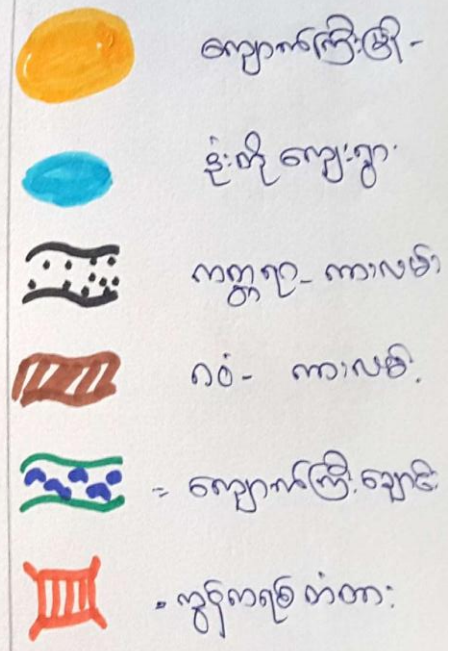 ကျောက်ကြီးမြို့ -
နုံးတိုကျေးရွာ
ကတ္တရာ - ကားလမ်း
ဂဝံ - ကားလမ်း
= ကျောက်ကြီးချောင်း
= ကွန်ကရစ်တံတား